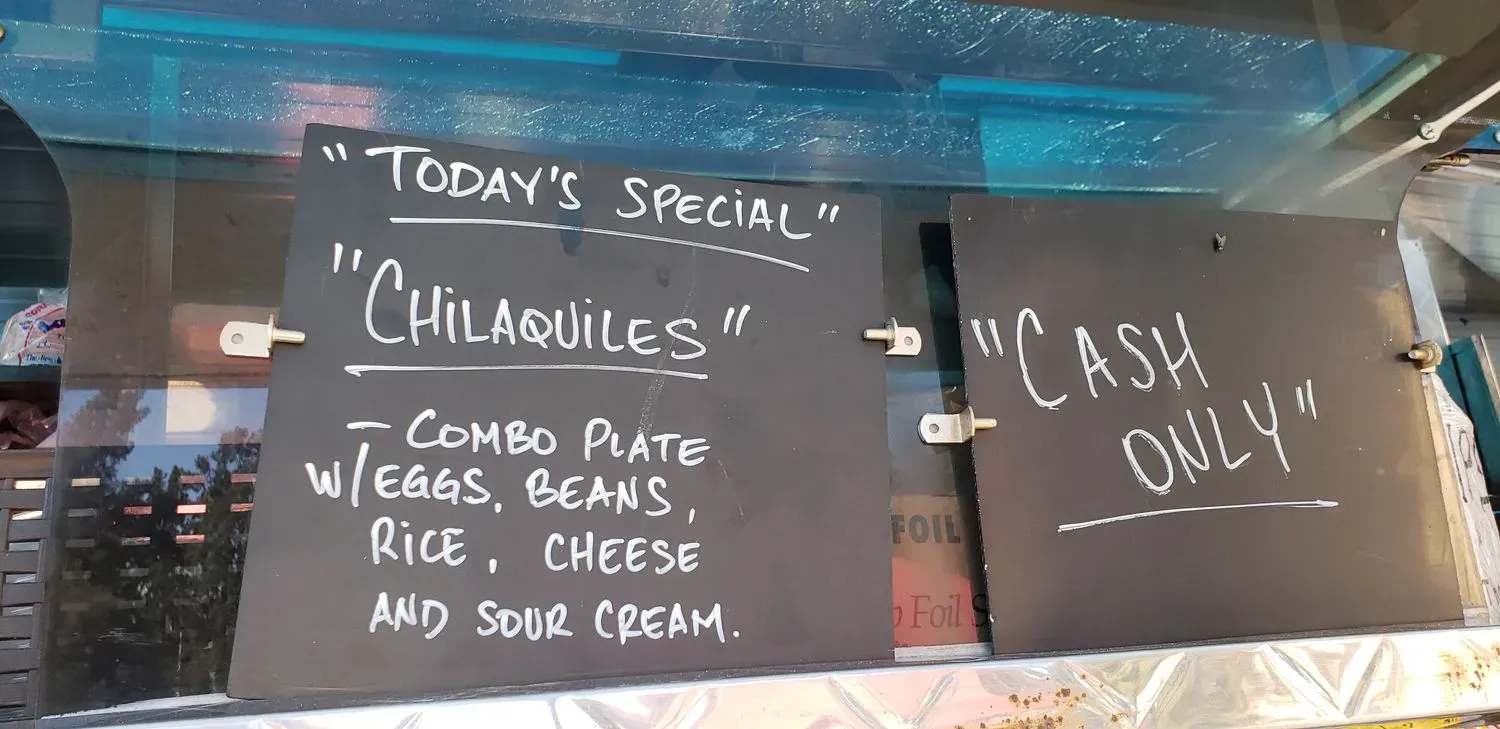 "TODAY'S SPECIAL"
"CHiLAQUiLES"
- COMBO PLATE
W/EGGS, BEANS,
RiCE, CHEESE
AND SOUR CREAM.
"CASH
ONLY"
FOIL
Foil